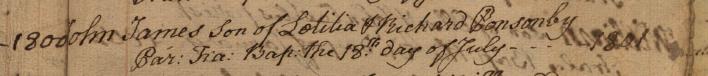 -1800 John James Son of Lætitia & Richard Ponsonby
Par: Fia: Bap: the 18th day of July - - - 1801